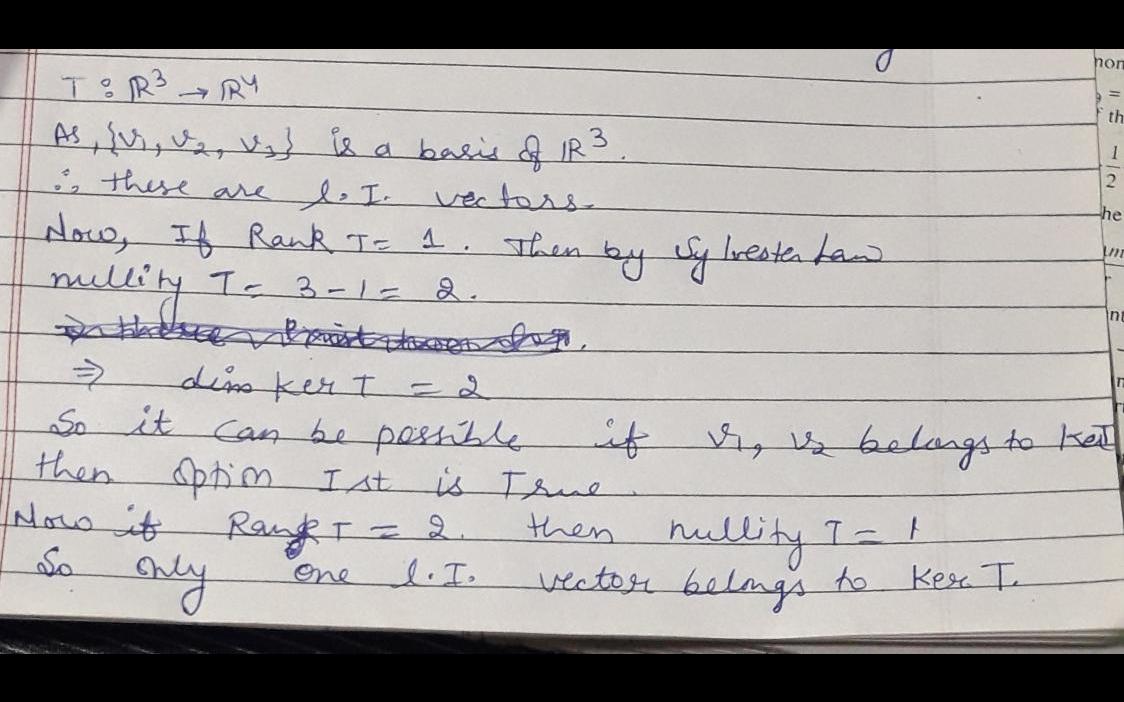 T : ℝ³ → ℝ⁴
As, {v₁, v₂, v₃} is a basis of ℝ³.
∴ these are l.I. vectors.
Now, If Rank T = 1. Then by Sylvester Law
nullity T = 3 - 1 = 2.
⇒ dim Ker T = 2
So it can be possible if v₁, v₂ belongs to KerT
then option Ist is True.
Now if Rank T = 2. then nullity T = 1
So only one l.I. vector belongs to Ker T.
non
=
th
1/2
he